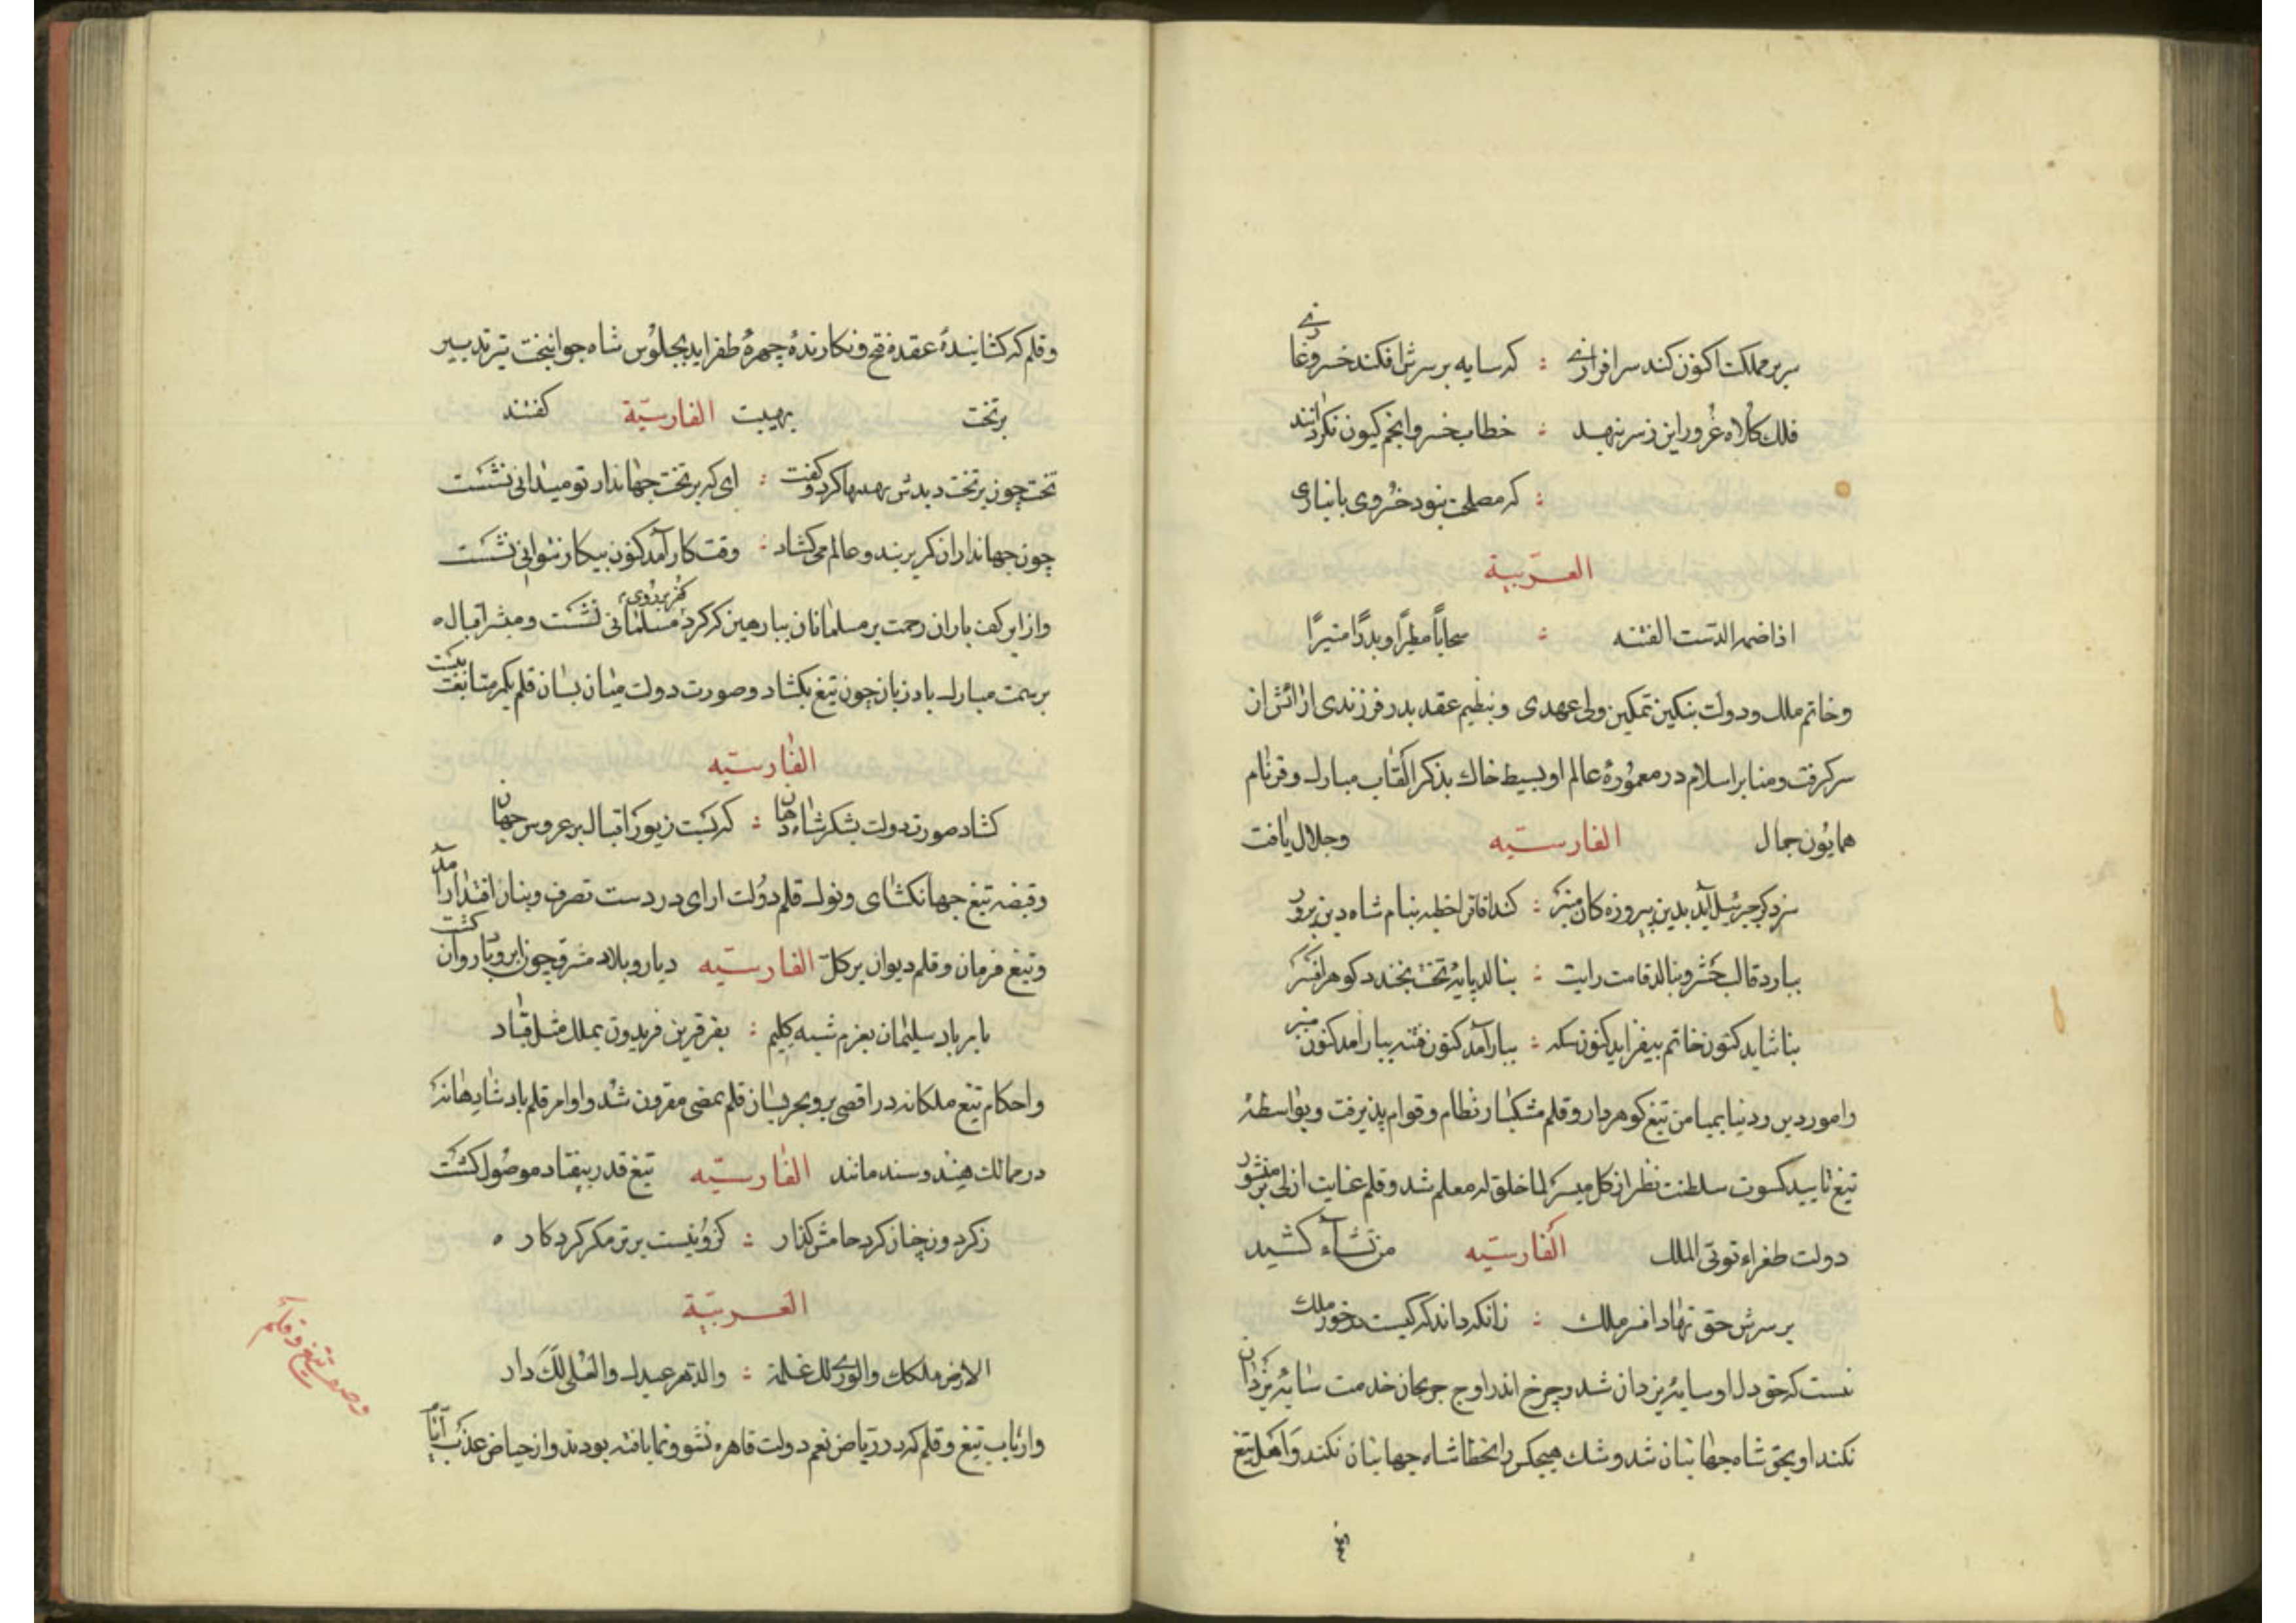 سریر مملکت اکنون کند سرافرازی : که سایه بر سرش افکند خسرو غازی
فلک کلاه غرور این ز سر بنهد : خطاب خسرو انجم کیون نگردانند
: که مصلحت نبود خسروی بانبازی
العربیة
اذا ضمه الدست الفتنه : سحاباً مطیراً وبدراً منیراً
وخاتم ملک ودولت بنکین تمکین ولی عهدی وبنظیم عقد بدر فرزندی ارائش از
سر کرفت ومنابر اسلام در معمورهٔ عالم او بسیط خاک بذکر القاب مبارک وفر نام
همایون جمال الفارسیّه وجلال یافت
سزد کر جبرئیل آید بدین پیروزه کان منبر : کند آفاق را خطبه بنام شاه دین پرور
ببارد قالب خسرو ببالد قامت رایت : بنالد پایهٔ تخت بخندد کوهر افسر
بناشاید کنون خاتم بیفزاید کنون سکه : ببار آمد کنون فتنه ببار آمد کنون منبر
وامور دین ودنیا بمیامن تیغ کوهردار وقلم مشکبار نظام وقوام پذیرفت وبواسطهٔ
تیغ تایید کسوت سلطنت نظر از کل میسر لما خلق له معلم شد وقلم عنایت ازلی بر منشور
دولت طغراء توتی الملک الفارسیّه من تشآء کشید
بر سرش حق نهاد افسر ملک : زانکه داند که کیست درخور ملک
نست که حق دل او سایهٔ یزدان شد وچرخ اندر اوج جریان خدمت سایهٔ یزدان
نکند او بحق شاه جهانبان شد وشک هیچکس را بخطا شاه جهانبان نکند واهل تیغ
وقلم که کشایندهٔ عقدهٔ فتح ونکارندهٔ چهرهٔ ظفراید بجلوس شاه جوانبخت تیر تدبیر
بر تخت بهیبت الفارسیّة کفتند
تخت چون بر تخت دیدش کرد وکفت : ای که بر تخت جهاندار تو میدانی نشست
چون جهانداران کمر بربند وعالم می کشاد : وقت کار آمد کنون بیکار نتوانی نشست
واز ابر کف باران رحمت بر مسلمانان ببار هین که کرد کفر بر روی مسلمانی نشست ومبشر اقبال ه
بر سمت مبارک باد زبان چون تیغ بکشاد وصورت دولت میان بسان قلم بکمر متابعت ببست
الفارسیّه
کشاد صورت دولت بشکر شاه دهان : که بست زیور اقبال بر عروس جهان
وقبضه تیغ جهانکشای ونوک قلم دولت ارای در دست تصرف وبنان اقتدار آمد
وتیغ فرمان وقلم دیوان بر کل الفارسیّه دیار وبلاد مشرق چون ابر وباد روان کشت
بابر باد سلیمان بعزم شبه کلیم : بفر قرین فریدون بملک مثل قباد
واحکام تیغ ملکانه در اقصی بر وبحر بسان قلم بمضی مقرون شد واوامر قلم پادشاهانه
در ممالک هند وسند مانند الفارسیّه تیغ قدر بنفاد موصول کشت
ز کردون چنان کرد حامش کذار : کزو نیست برتر مکر کردکار ه
العربیّة
الارض ملکک والوری لک غلمة : والدهر عبدک والعلی لک دار
وارباب تیغ وقلم که در ریاض نعم دولت قاهره نشو ونما یافته بودند واز حیاض عذب
وصف تیغ وقلم